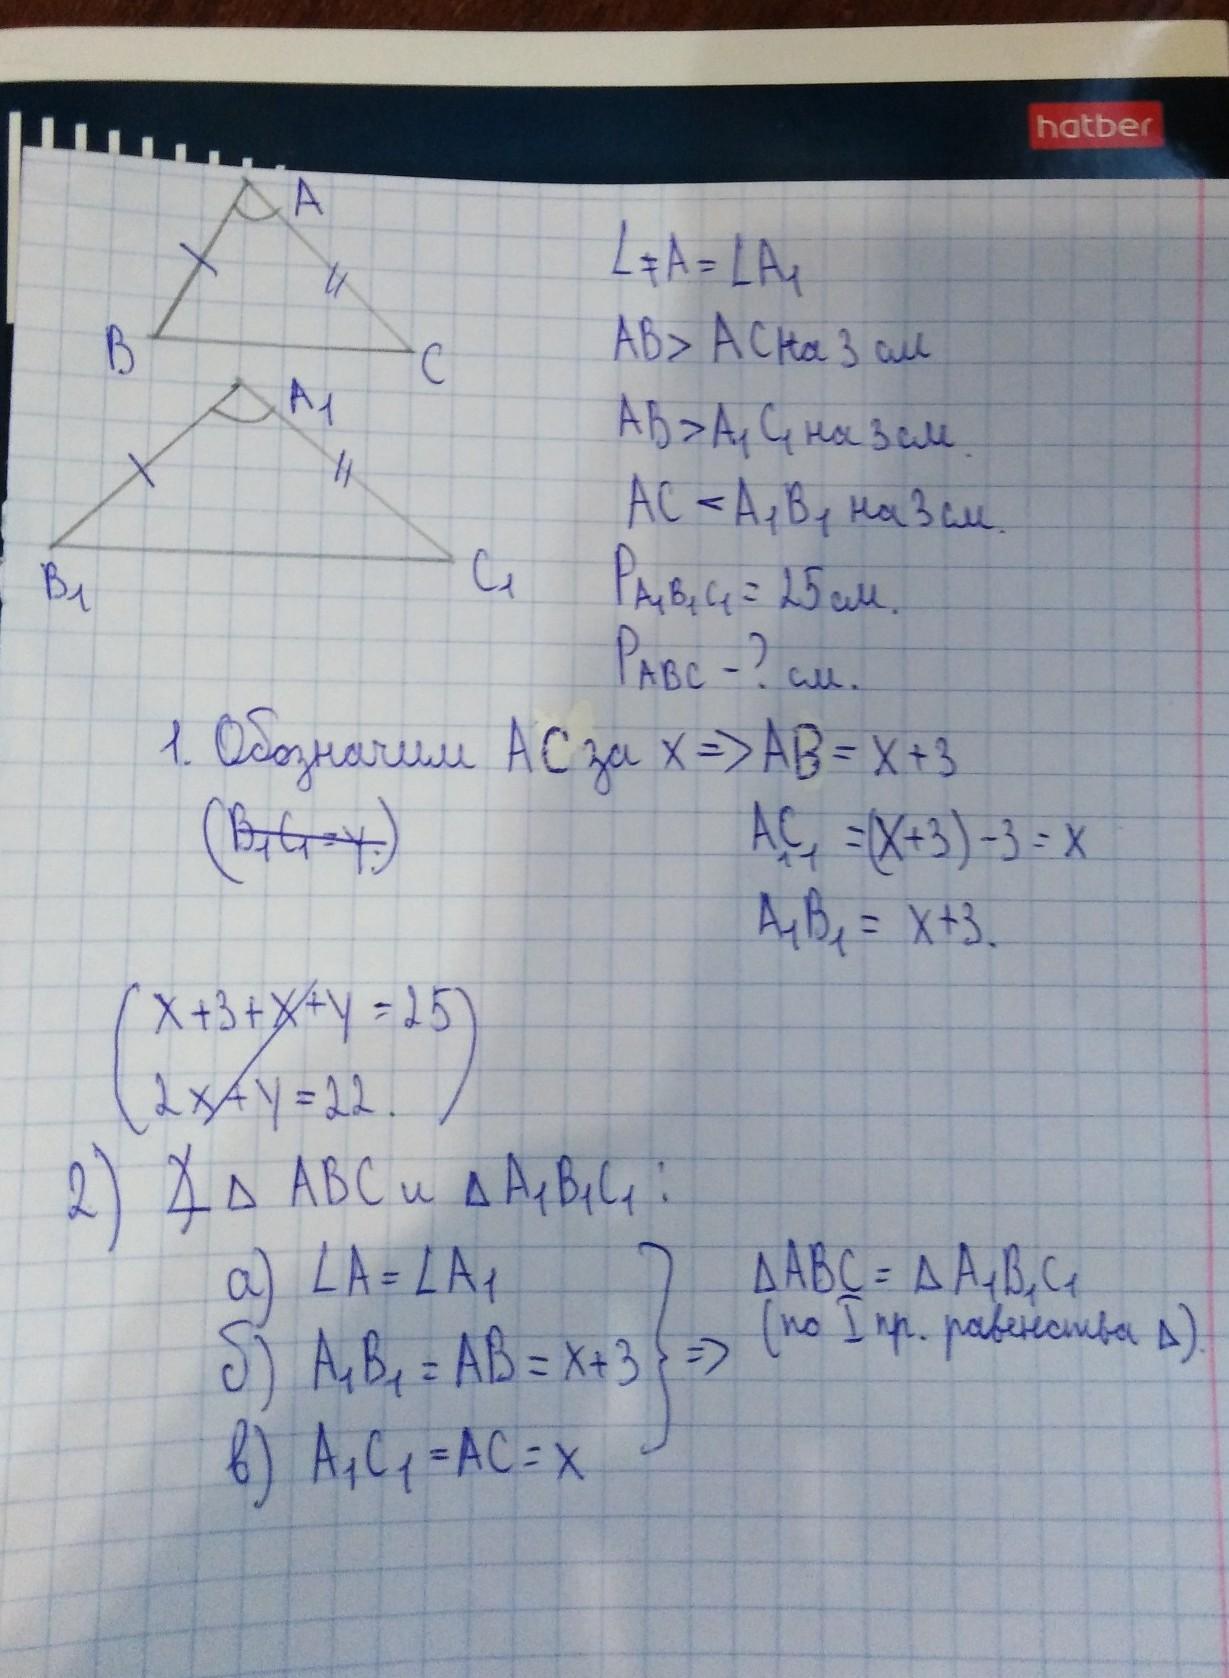 hatber
A
B
C
A₁
B₁
C₁
∠A = ∠A₁
AB > AC на 3 см
AB > A₁C₁ на 3 см.
AC < A₁B₁ на 3 см.
P A₁B₁C₁ = 25 см.
P ABC - ? см.
1. Обозначим AC за x => AB = x+3
(B₁C₁ = y.)
A₁C₁ = (x+3) - 3 = x
A₁B₁ = x+3.
(x+3+x+y = 25
2x+y = 22.)
2) Δ ABC и Δ A₁B₁C₁ :
а) ∠A = ∠A₁
б) A₁B₁ = AB = x+3
в) A₁C₁ = AC = x
=> ΔABC = Δ A₁B₁C₁
(по I пр. равенства Δ).